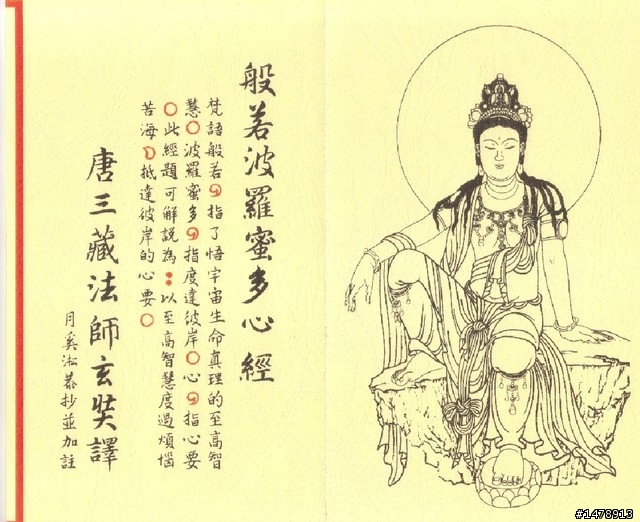 般若波羅蜜多心經
梵語般若，指了悟宇宙生命真理的至高智
慧。波羅蜜多，指度達彼岸。心，指心要
。此經題可解說為：以至高智慧度過煩惱
苦海，抵達彼岸的心要。
唐三藏法師玄奘譯
月奚淞恭抄並加註
#1478913